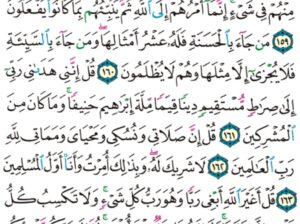 مِنْهُمْ فِي شَيْءٍ إِنَّمَا أَمْرُهُمْ إِلَى اللَّهِ ثُمَّ يُنَبِّئُهُم بِمَا كَانُوا يَفْعَلُونَ
١٥٩ مَن جَاءَ بِالْحَسَنَةِ فَلَهُ عَشْرُ أَمْثَالِهَا وَمَن جَاءَ بِالسَّيِّئَةِ
فَلَا يُجْزَىٰ إِلَّا مِثْلَهَا وَهُمْ لَا يُظْلَمُونَ ١٦٠ قُلْ إِنَّنِي هَدَانِي رَبِّي
إِلَىٰ صِرَاطٍ مُّسْتَقِيمٍ دِينًا قِيَمًا مِّلَّةَ إِبْرَاهِيمَ حَنِيفًا وَمَا كَانَ مِنَ
الْمُشْرِكِينَ ١٦١ قُلْ إِنَّ صَلَاتِي وَنُسُكِي وَمَحْيَايَ وَمَمَاتِي لِلَّهِ
رَبِّ الْعَالَمِينَ ١٦٢ لَا شَرِيكَ لَهُ وَبِذَٰلِكَ أُمِرْتُ وَأَنَا أَوَّلُ الْمُسْلِمِينَ
١٦٣ قُلْ أَغَيْرَ اللَّهِ أَبْغِي رَبًّا وَهُوَ رَبُّ كُلِّ شَيْءٍ وَلَا تَكْسِبُ كُلُّ